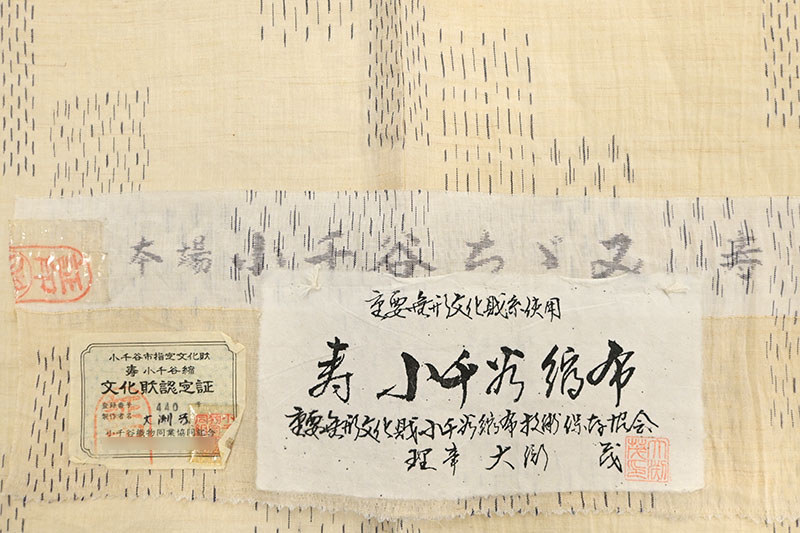 本場 小千谷ちゞみ 寿
重要無形文化財糸使用
寿 小千谷縮布
重要無形文化財小千谷縮布技術保存協会
理事 大渕 茂
小千谷市指定文化財
寿 小千谷縮
文化財認定証
登録番号 440 号
製作者名 大渕
小千谷織物同業協同組合